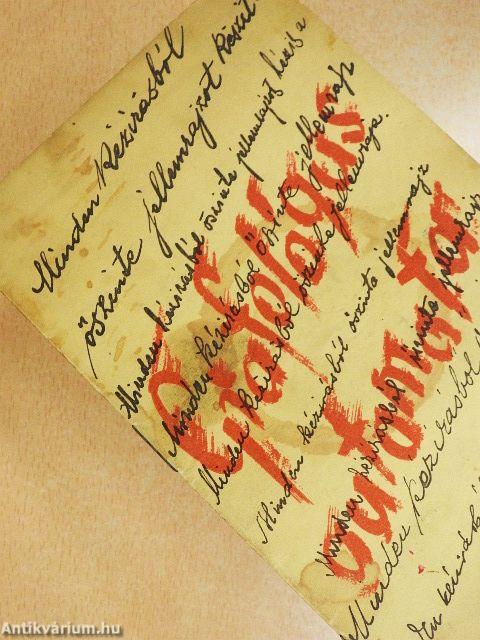 Minden kézírásból
őszinte jellemrajzot készít
Minden kézírásból őszinte jellemrajzot készít a
Minden kézírásból őszinte jellemrajz
Minden kézírásból őszinte jellemrajz.
Minden kézírásból őszinte jellemrajz
Minden kézírásból őszinte jellemrajz
Minden kézírásból
Grafológus
automata
Antikvárium.hu